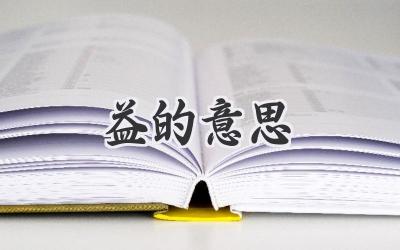 益的意思